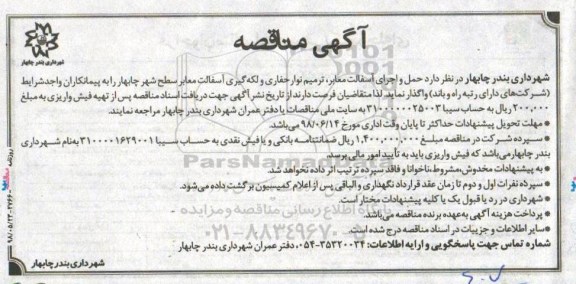 آگهی مناقصه
شهرداری بندر چابهار
شهرداری بندر چابهار در نظر دارد حمل و اجرای آسفالت معابر، ترمیم نوار حفاری و لکه گیری آسفالت معابر سطح شهر چابهار را به پیمانکاران واجد شرایط
(شرکت‌های دارای رتبه راه و باند) واگذار نماید. لذا متقاضیان فرصت دارند از تاریخ نشر آگهی جهت دریافت اسناد مناقصه پس از تهیه فیش واریزی به مبلغ
۲۰۰,۰۰۰ ریال به حساب سیبا ۳۱۰۰۰۰۰۰۲۵۰۰۳ به سایت ملی مناقصات یا دفتر عمران شهرداری بندر چابهار مراجعه نمایند.
• مهلت تحویل پیشنهادات حداکثر تا پایان وقت اداری مورخ ۹۸/۰۶/۱۴ می‌باشد.
• سپرده شرکت در مناقصه مبلغ ۱,۴۰۰,۰۰۰,۰۰۰ ریال ضمانتنامه بانکی و یا فیش نقدی به حساب سیبا ۳۱۰۰۰۰۱۶۲۹۰۰۱ به‌نام شهرداری
بندر چابهار می‌باشد که فیش واریزی باید به تأیید امور مالی برسد.
• به پیشنهادات مخدوش، مشروط، ناخوانا و فاقد سپرده ترتیب اثر داده نخواهد شد.
• سپرده نفرات اول و دوم تا زمان عقد قرارداد نگهداری و الباقی پس از اعلام کمیسیون برگشت داده می‌شود.
• شهرداری در رد یا قبول یک یا کلیه پیشنهادات مختار است.
• پرداخت هزینه آگهی به‌عهده برنده مناقصه می‌باشد.
• سایر اطلاعات و جزییات در اسناد مناقصه درج شده است.
شماره تماس جهت پاسخگویی و ارایه اطلاعات: ۳۵۳۲۰۰۳۴-۰۵۴، دفتر عمران شهرداری بندر چابهار
شهرداری بندر چابهار
ParsNamadData
پایگاه اطلاع رسانی مناقصه و مزایده
۰۲۱-۸۸۳۴۹۶۷۰